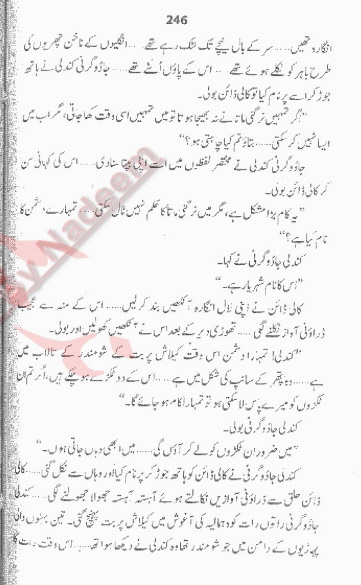 246
انگارہ تھیں..... سر کے بال نیچے تک لٹک رہے تھے..... انگلیوں کے ناخن چھریوں کی
طرح باہر کو نکلے ہوئے تھے..... اس کے پاؤں اُلٹے تھے..... جادوگرنی کندلی نے ہاتھ
جوڑ کر اسے پرنام کیا تو کالی ڈائن بولی۔
"اگر تمہیں نرگنی ماتا نے نہ بھیجا ہوتا تو میں تمہیں اسی وقت کھا جاتی، مگر اب میں
ایسا نہیں کر سکتی..... بتاؤ تم کیا چاہتی ہو؟"
جادوگرنی کندلی نے مختصر لفظوں میں اسے اپنی بپتا سنا دی..... اس کی کہانی سن
کر کالی ڈائن بولی۔
"یہ کام بڑا مشکل ہے، مگر میں نرگنی ماتا کا حکم نہیں ٹال سکتی..... تمہارے دشمن کا
نام کیا ہے؟"
کندلی جادوگرنی نے کہا۔
"اس کا نام شہریار ہے۔"
کالی ڈائن نے اپنی لال انگارہ آنکھیں بند کر لیں..... اس کے منہ سے عجیب
ڈراؤنی آواز نکلنے لگی..... تھوڑی دیر کے بعد اس نے آنکھیں کھولیں اور بولی۔
"کندلی! تمہارا دشمن اس وقت کیلاش پربت کے شومندر کے تالاب میں
ہے..... وہ پتھر کے سانپ کی شکل میں ہے..... اس کے دو ٹکڑے ہو چکے ہیں، اگر تم ان
ٹکڑوں کو میرے پاس لا سکتی ہو تو تمہارا کام ہو جائے گا۔"
کندلی جادوگرنی بولی۔
"میں ضرور ان ٹکڑوں کو لے کر آؤں گی..... میں ابھی وہاں جاتی ہوں۔"
کندلی جادوگرنی نے کالی ڈائن کو ہاتھ جوڑ کر پرنام کیا اور وہاں سے نکل گئی..... کالی
ڈائن حلق سے ڈراؤنی آوازیں نکالتے ہوئے آہستہ آہستہ جھولا جھولنے لگی..... کندلی
جادوگرنی راتوں رات کوہ ہمالیہ کی آغوش میں کیلاش پربت پر پہنچ گئی۔ تین بہنوں والی
پہاڑیوں کے دامن میں جو شومندر تھا وہ کندلی نے دیکھا ہوا تھا..... اس وقت رات کا
Nadeem